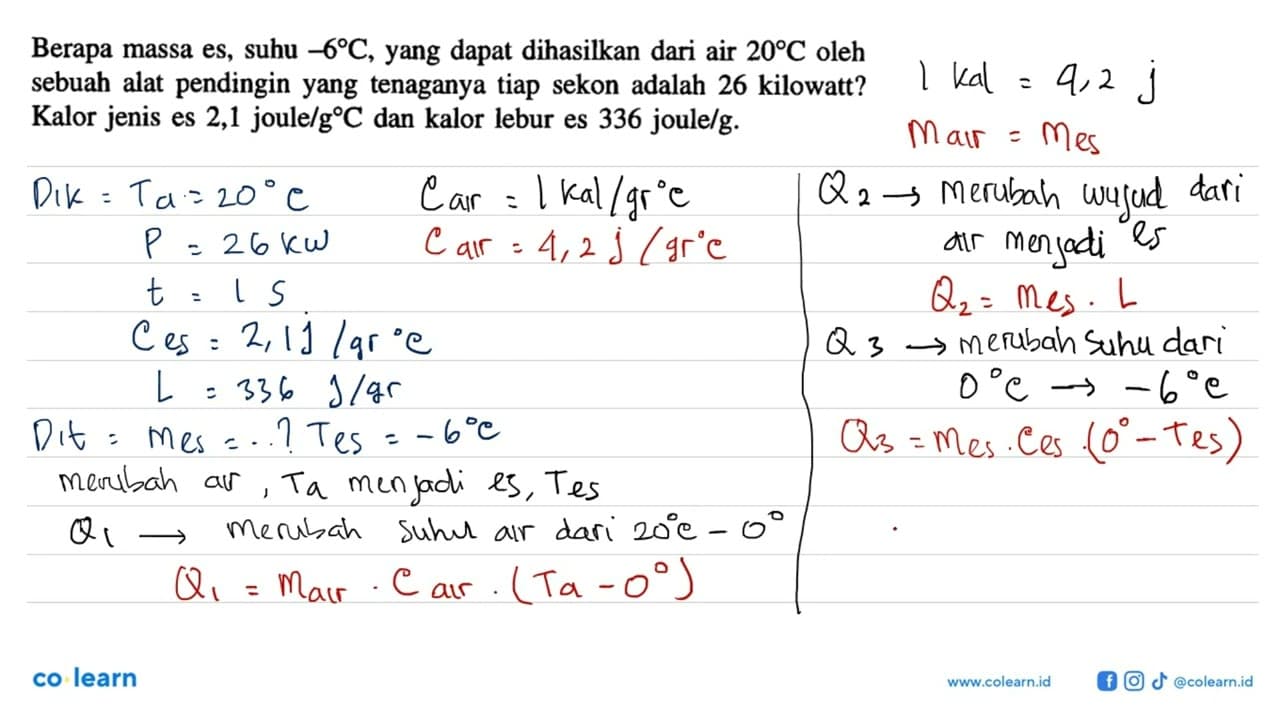 Berapa massa es, suhu –6°C, yang dapat dihasilkan dari air 20°C oleh
sebuah alat pendingin yang tenaganya tiap sekon adalah 26 kilowatt?
Kalor jenis es 2,1 joule/g°C dan kalor lebur es 336 joule/g.
1 kal = 4,2 j
mair = mes
Dik = Ta = 20°C
P = 26 kW
t = 1 s
Ces = 2,1 J/gr °C
L = 336 J/gr
Cair = 1 kal/gr°C
Cair = 4,2 j/gr°C
Dit = mes = ..? Tes = -6°C
merubah air, Ta menjadi es, Tes
Q1 → merubah suhu air dari 20°C - 0°
Q1 = mair . Cair . (Ta - 0°)
Q2 → merubah wujud dari
air menjadi es
Q2 = mes . L
Q3 → merubah suhu dari
0°C → -6°C
Q3 = mes . Ces . (0° - Tes)
co learn
www.colearn.id
@colearn.id